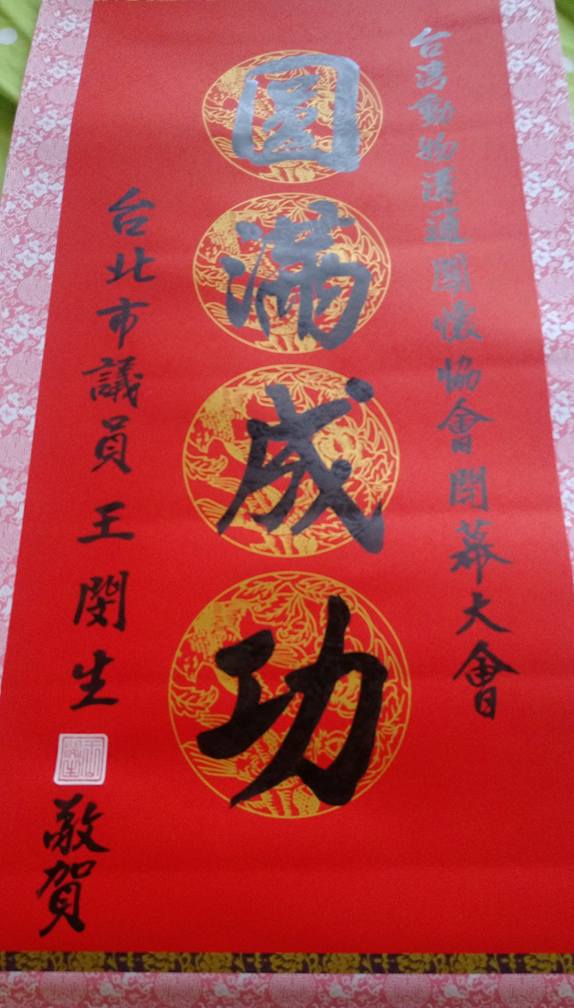 台湾動物溝通關懷協會開幕大會
圓滿成功
台北市議員王閔生
敬賀